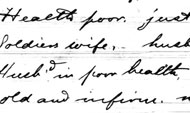 Health poor. just
Soldiers wife, husb
Husbd in poor health
old and infirm.